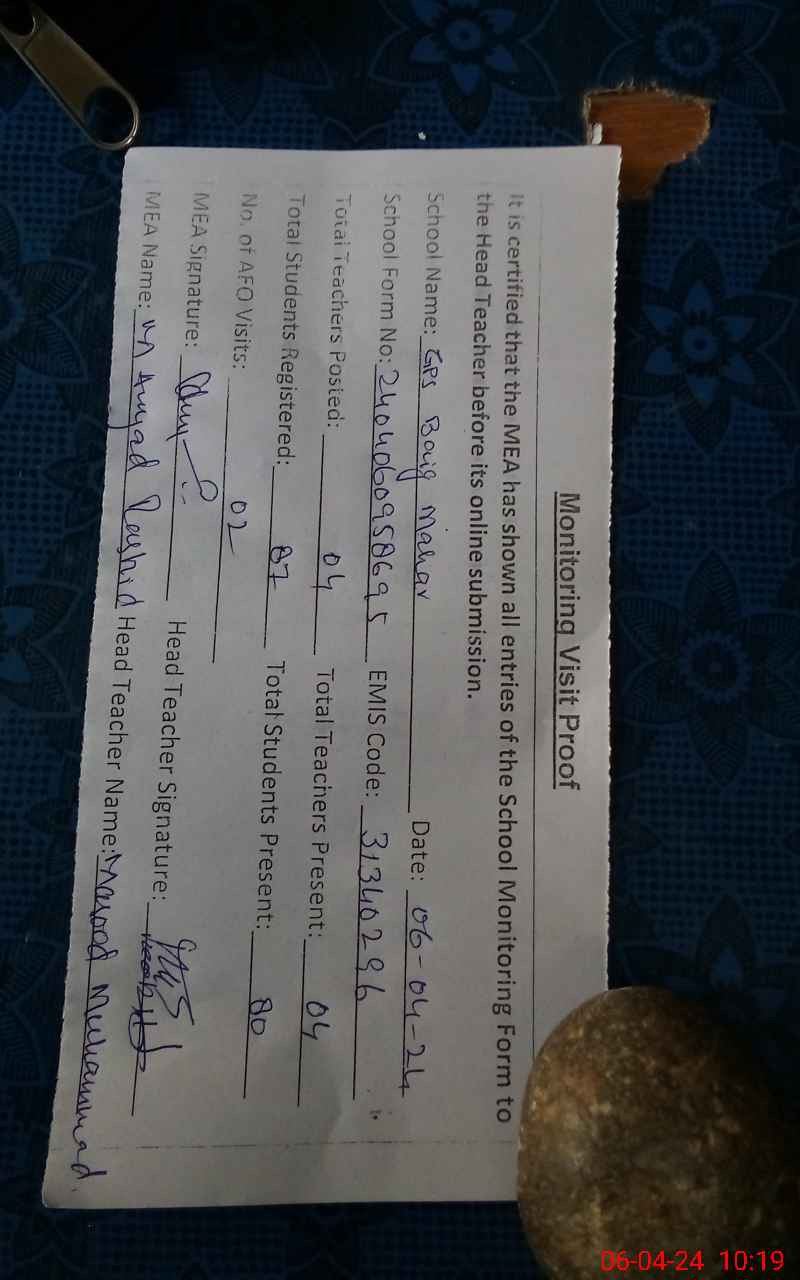 Monitoring Visit Proof
It is certified that the MEA has shown all entries of the School Monitoring Form to
the Head Teacher before its online submission.
School Name: GPS Baig Mahar Date: 06-04-24
School Form No: 240406095869 5 EMIS Code: 31340296
Total Teachers Posted: 04 Total Teachers Present: 04
Total Students Registered: 87 Total Students Present: 80
No. of AEO Visits: 02
MEA Signature: Head Teacher Signature:
MEA Name: M Amjad Rashid Head Teacher Name: Masood Muhammad.
06-04-24 10:19